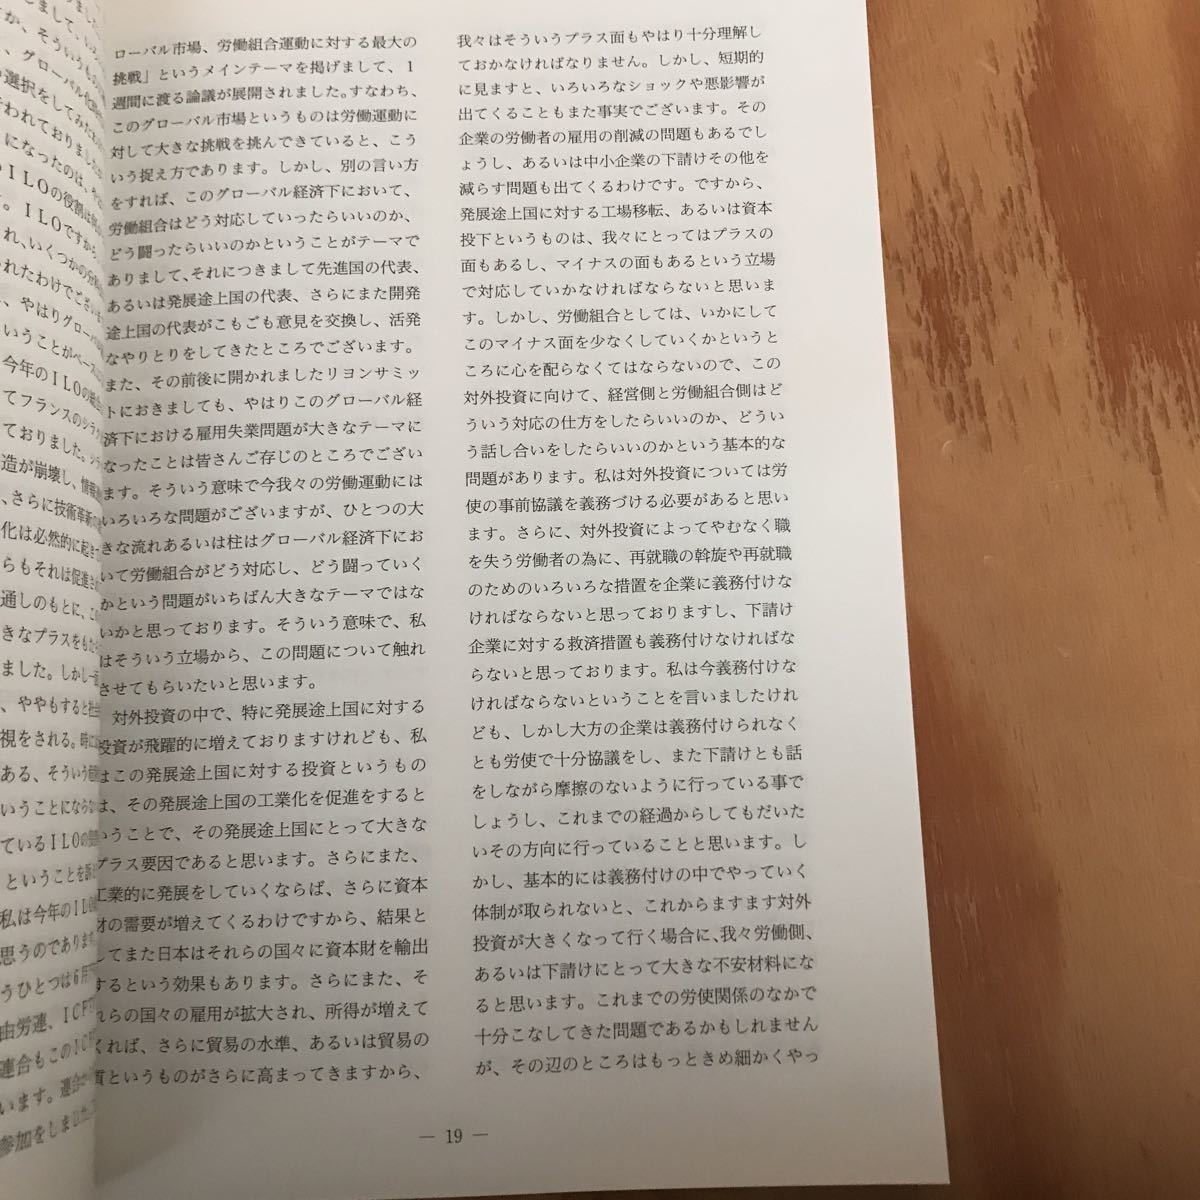 ローバル市場、労働組合運動に対する最大の
挑戦」というメインテーマを掲げまして、1
週間に渡る論議が展開されました。すなわち、
このグローバル市場というものは労働運動に
対して大きな挑戦を挑んできていると、こう
いう捉え方であります。しかし、別の言い方
をすれば、このグローバル経済下において、
労働組合はどう対応していったらいいのか、
どう闘ったらいいのかということがテーマで
ありまして、それにつきまして先進国の代表、
あるいは発展途上国の代表、さらにまた開発
途上国の代表がこもごも意見を交換し、活発
なやりとりをしてきたところでございます。
また、その前後に開かれましたリヨンサミッ
トにおきましても、やはりこのグローバル経
済下における雇用失業問題が大きなテーマに
なったことは皆さんご存じのところでござい
ます。そういう意味で今我々の労働運動には
いろいろな問題がございますが、ひとつの大
きな流れあるいは柱はグローバル経済下にお
いて労働組合がどう対応し、どう闘っていく
かという問題がいちばん大きなテーマではな
いかと思っております。そういう意味で、私
はそういう立場から、この問題について触れ
させてもらいたいと思います。
対外投資の中で、特に発展途上国に対する
投資が飛躍的に増えておりますけれども、私
はこの発展途上国に対する投資というもの
は、その発展途上国の工業化を促進をすると
いうことで、その発展途上国にとって大きな
プラス要因であると思います。さらにまた、
工業的に発展をしていくならば、さらに資本
財の需要が増えてくるわけですから、結果と
してまた日本はそれらの国々に資本財を輸出
するという効果もあります。さらにまた、そ
れらの国々の雇用が拡大され、所得が増えて
くれば、さらに貿易の水準、あるいは貿易の
質というものがさらに高まってきますから、
我々はそういうプラス面もやはり十分理解し
ておかなければなりません。しかし、短期的
に見ますと、いろいろなショックや悪影響が
出てくることもまた事実でございます。その
企業の労働者の雇用の削減の問題もあるでし
ょうし、あるいは中小企業の下請けその他を
減らす問題も出てくるわけです。ですから、
発展途上国に対する工場移転、あるいは資本
投下というものは、我々にとってはプラスの
面もあるし、マイナスの面もあるという立場
で対応していかなければならないと思いま
す。しかし、労働組合としては、いかにして
このマイナス面を少なくしていくかというと
ころに心を配らなくてはならないので、この
対外投資に向けて、経営側と労働組合側はど
ういう対応の仕方をしたらいいのか、どうい
う話し合いをしたらいいのかという基本的な
問題があります。私は対外投資については労
使の事前協議を義務づける必要があると思い
ます。さらに、対外投資によってやむなく職
を失う労働者の為に、再就職の斡旋や再就職
のためのいろいろな措置を企業に義務付けな
ければならないと思っておりますし、下請け
企業に対する救済措置も義務付けなければな
らないと思っております。私は今義務付けな
ければならないということを言いましたけれ
ども、しかし大方の企業は義務付けられなく
とも労使で十分協議をし、また下請けとも話
をしながら摩擦のないように行っている事で
しょうし、これまでの経過からしてもだいた
いその方向に行っていることと思います。し
かし、基本的には義務付けの中でやっていく
体制が取られないと、これからますます対外
投資が大きくなって行く場合に、我々労働側、
あるいは下請けにとって大きな不安材料にな
ると思います。これまでの労使関係のなかで
十分こなしてきた問題であるかもしれません
が、その辺のところはもっときめ細かくやっ
— 19 —